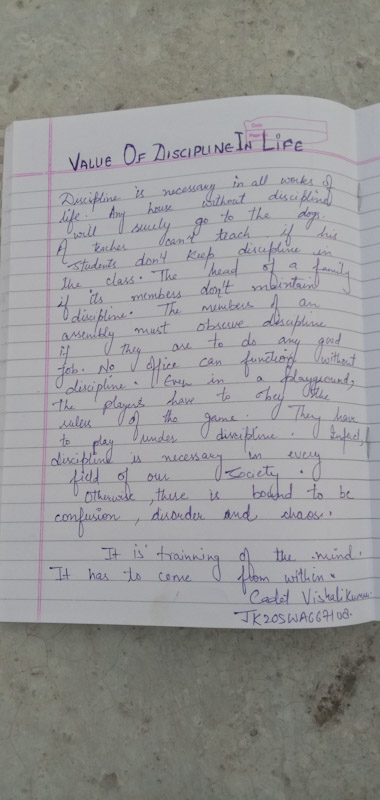 VALUE OF DISCIPLINE IN LIFE
Discipline is necessary in all works of
life. Any house without discipline
will surely go to the dogs.
A teacher can't teach if his
students don't keep discipline in
the class. The head of a family
if its members don't maintain
discipline. The members of an
assembly must observe discipline
if they are to do any good
job. No office can function without
discipline. Even in a playground,
the players have to obey the
rules of the game. They have
to play under discipline. Infact,
discipline is necessary in every
field of our society.
Otherwise, there is bound to be
confusion, disorder and chaos.
It is training of the mind.
It has to come from within.
Cadet Vishali Kumar